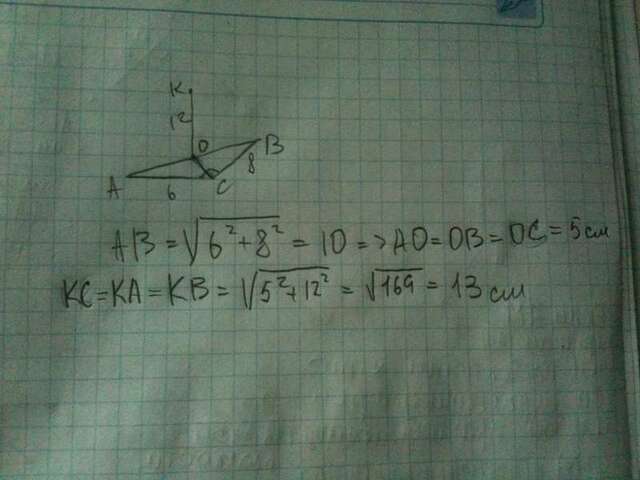 K
12
O
B
8
A
6
C
AB = √6² + 8² = 10 => AO = OB = OC = 5 см
KC = KA = KB = √5² + 12² = √169 = 13 см